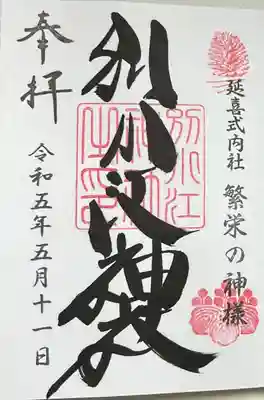 延喜式内社 繁栄の神様
別小江神社
別小江
奉拝
令和五年五月十一日